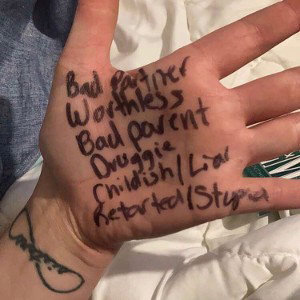 Bad Partner
Worthless
Bad parent
Druggie
Childish/Liar
Retarted/Stupid